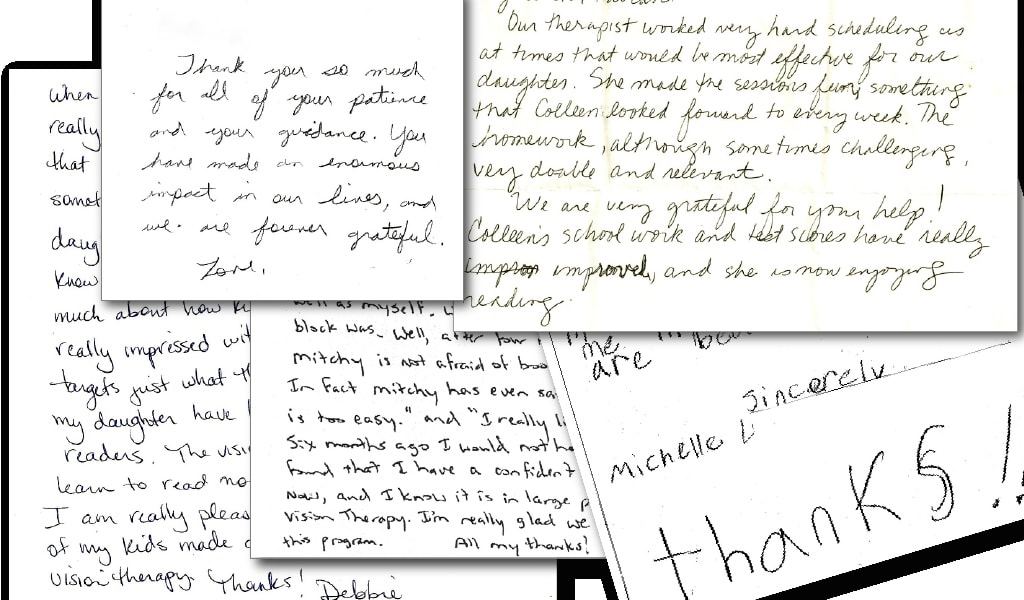 Thank you so much
for all of your patience
and your guidance. You
have made an enormous
impact in our lives, and
we are forever grateful.
Love,
Our therapist worked very hard scheduling us
at times that would be most effective for our
daughter. She made the sessions fun, something
that Colleen looked forward to every week. The
homework, although sometimes challenging,
very doable and relevant.
We are very grateful for your help!
Colleen's school work and test scores have really
improved, and she is now enjoying
reading.
when
really
that
daug
know
much about how ki
really impressed wit
targets just what th
my daughter have
readers. The visi
learn to read no
I am really pleas
of my kids made
vision therapy. Thanks!
Debbie
well as myself.
block was. Well, after four
mitchy is not afraid of boo
In fact mitchy has even sa
is too easy." and "I really li
Six months ago I would not ha
found that I have a confident
Now, and I know it is in large p
Vision Therapy. I'm really glad we
this program. All my thanks!
me
are
Sincerely
Michelle L
thanks!!